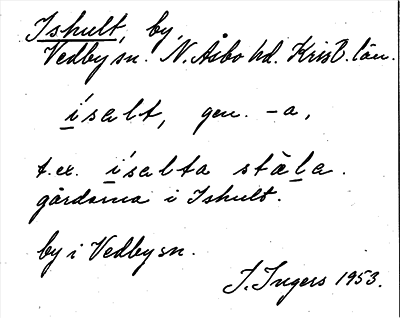 Ishult, by,
Vedby sn. N. Åsbo hd. Krist. län.
ísalt, gen. -a,
t. ex. ísalta stäla.
gårdarna i Ishult.
by i Vedby sn.
I. Ingers 1953.